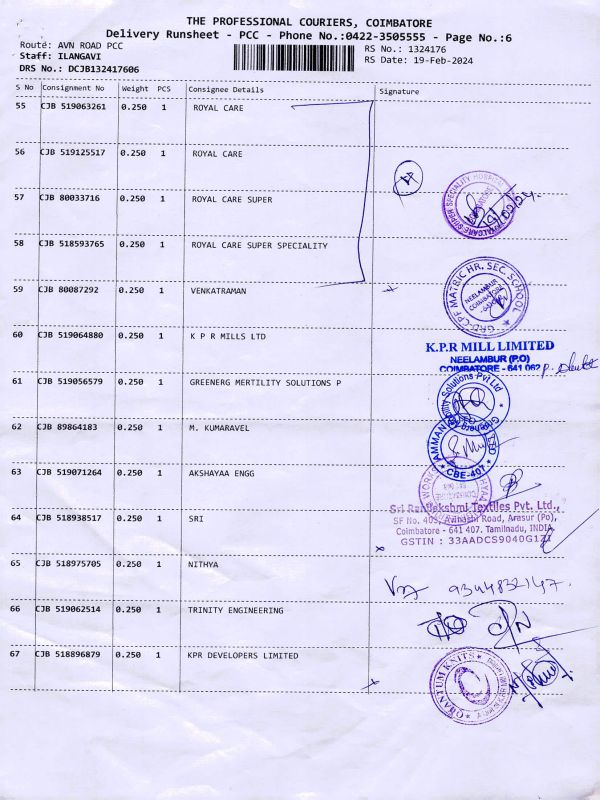 THE PROFESSIONAL COURIERS, COIMBATORE
Delivery Runsheet - PCC - Phone No.:0422-3505555 - Page No.:6
Route: AVN ROAD PCC
RS No.: 1324176
Staff: ILANGAVI
RS Date: 19-Feb-2024
DRS No.: DCJB132417606
S No Consignment No Weight PCS Consignee Details Signature
55 CJB 519063261 0.250 1 ROYAL CARE
56 CJB 519125517 0.250 1 ROYAL CARE
57 CJB 80033716 0.250 1 ROYAL CARE SUPER
SUPER SPECIALITY HOSPITAL
58 CJB 518593765 0.250 1 ROYAL CARE SUPER SPECIALITY
59 CJB 80087292 0.250 1 VENKATRAMAN
MATRIC HR. SEC. SCHOOL
NEELAMBUR
COIMBATORE
60 CJB 519064880 0.250 1 K P R MILLS LTD
K.P.R MILL LIMITED
NEELAMBUR (P.O)
COIMBATORE - 641 062
61 CJB 519056579 0.250 1 GREENERG MERTILITY SOLUTIONS P
Solutions Pvt Ltd
62 CJB 89864183 0.250 1 M. KUMARAVEL
CBE-407
63 CJB 519071264 0.250 1 AKSHAYAA ENGG
64 CJB 518938517 0.250 1 SRI
Textiles Pvt. Ltd.,
SF No. 405, Avinashi Road, Arasur (Po),
Coimbatore - 641 407. Tamilnadu, INDIA
GSTIN : 33AADCS9040G1ZI
65 CJB 518975705 0.250 1 NITHYA
9344832147.
66 CJB 519062514 0.250 1 TRINITY ENGINEERING
67 CJB 518896879 0.250 1 KPR DEVELOPERS LIMITED
QUANTUM KNITS